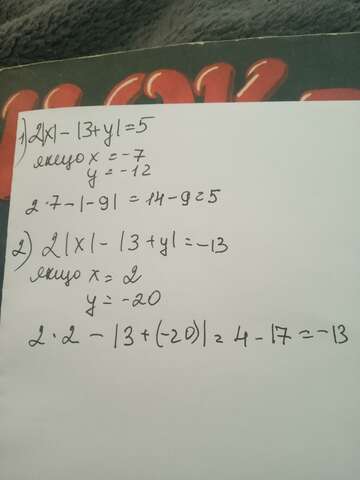 1) 2|x| - |3+y| = 5
якщо x = -7
y = -12
2·7 - |-9| = 14 - 9 = 5
2) 2|x| - |3+y| = -13
якщо x = 2
y = -20
2·2 - |3+(-20)| = 4 - 17 = -13